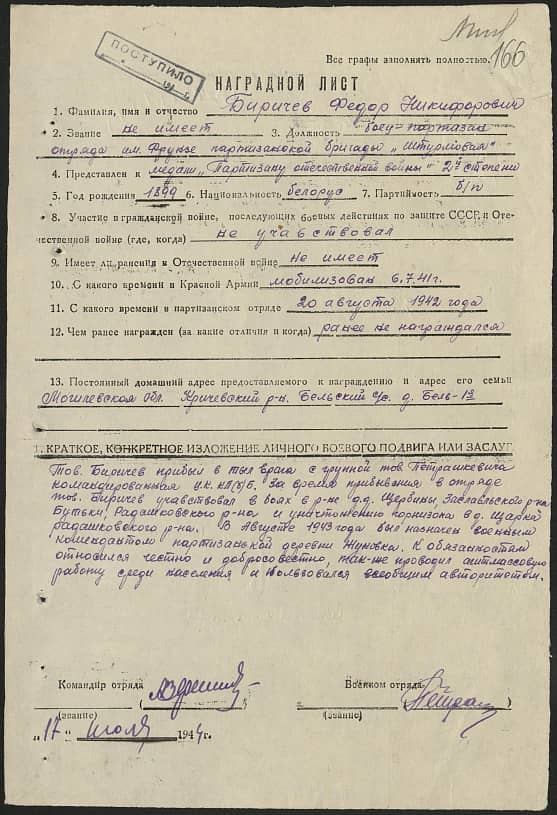 ПОСТУПИЛО
166
Все графы заполнять полностью.
НАГРАДНОЙ ЛИСТ
1. Фамилия, имя и отчество Биричев Федор Никифорович
2. Звание не имеет 3. Должность боец-партизан
отряда им. Фрунзе партизанской бригады "Штурмовая"
4. Представлен к медали "Партизану отечественной войны" 2й степени
5. Год рождения 1899 6. Национальность белорус 7. Партийность б/п
8. Участие в гражданской войне, последующих боевых действиях по защите СССР и Оте-
чественной войне (где, когда) не учавствовал
9. Имеет ли ранения в Отечественной войне не имеет
10. С какого времени в Красной Армии мобилизован 6.7.41г.
11. С какого времени в партизанском отряде 20 августа 1942 года
12. Чем ранее награжден (за какие отличия и когда) ранее не награждался
13. Постоянный домашний адрес предоставляемого к награждению и адрес его семьи
Могилевская обл. Кричевский р-н. Бельский с/с. д. Бель-1я
1. КРАТКОЕ, КОНКРЕТНОЕ ИЗЛОЖЕНИЕ ЛИЧНОГО БОЕВОГО ПОДВИГА ИЛИ ЗАСЛУГ
Тов. Биричев прибыл в тыл врага с группой тов Петрашкевича
командированная Ц.К. КП(б)Б. За время прибивания в отряде
тов. Биричев учавствовал в боях в р-не д.д. Щербины Заславльского р-на
Бутьки, Радашковского р-на и уничтожению горнизона в д. Щарка
радашковского р-на. В Августе 1943 года был назначен военным
комендантом партизанькой деревни Жуновка. К обязаностям
относился честно и добросовестно, так-же проводил агитмассовую
работу среди населения и пользовался всеобщим авторитетом.
Командир отряда Военком отряда
(звание) (звание)
"17" июля 1944г.